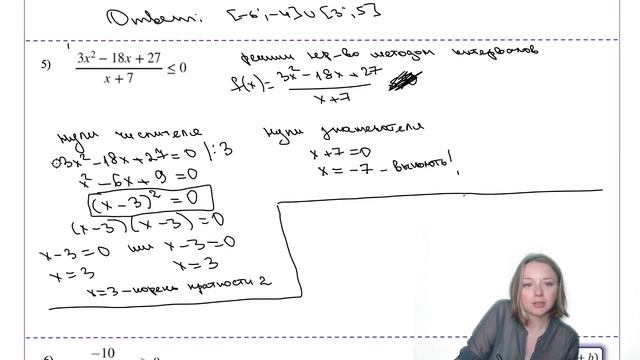 Ответ: [-6;-4]∪[3;5]
5) (3x² − 18x + 27)/(x + 7) ≤ 0
решим нер-во методом интервалов
f(x) = (3x²-18x+27)/(x+7)
нули числителя
3x²-18x+27=0 |:3
x²-6x+9=0
(x-3)²=0
(x-3)(x-3)=0
x-3=0 или x-3=0
x=3 x=3
x=3 - корень кратности 2
нули знаменателя
x+7=0
x=-7 - выколоть!
6) −10
+ b)